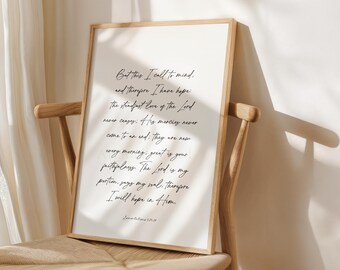 But this I call to mind,
and therefore I have hope
the steadfast love of the Lord
never ceases; His mercies never
come to an end; they are new
every morning; great is your
faithfulness. The Lord is my
portion says my soul, therefore
I will hope in Him.